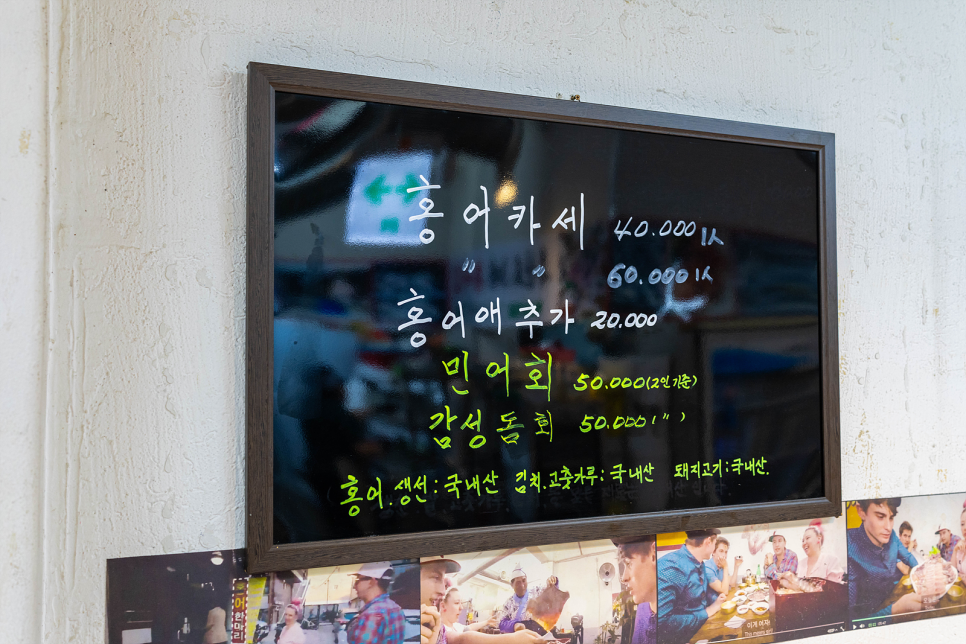 홍어카세 40.000 1人
" " 60.000 1人
홍어애추가 20.000
민어회 50.000(2인 기준)
감성돔회 50.000( " )
홍어.생선:국내산 김치.고춧가루:국내산 돼지고기:국내산.
어한마리
이게 여자